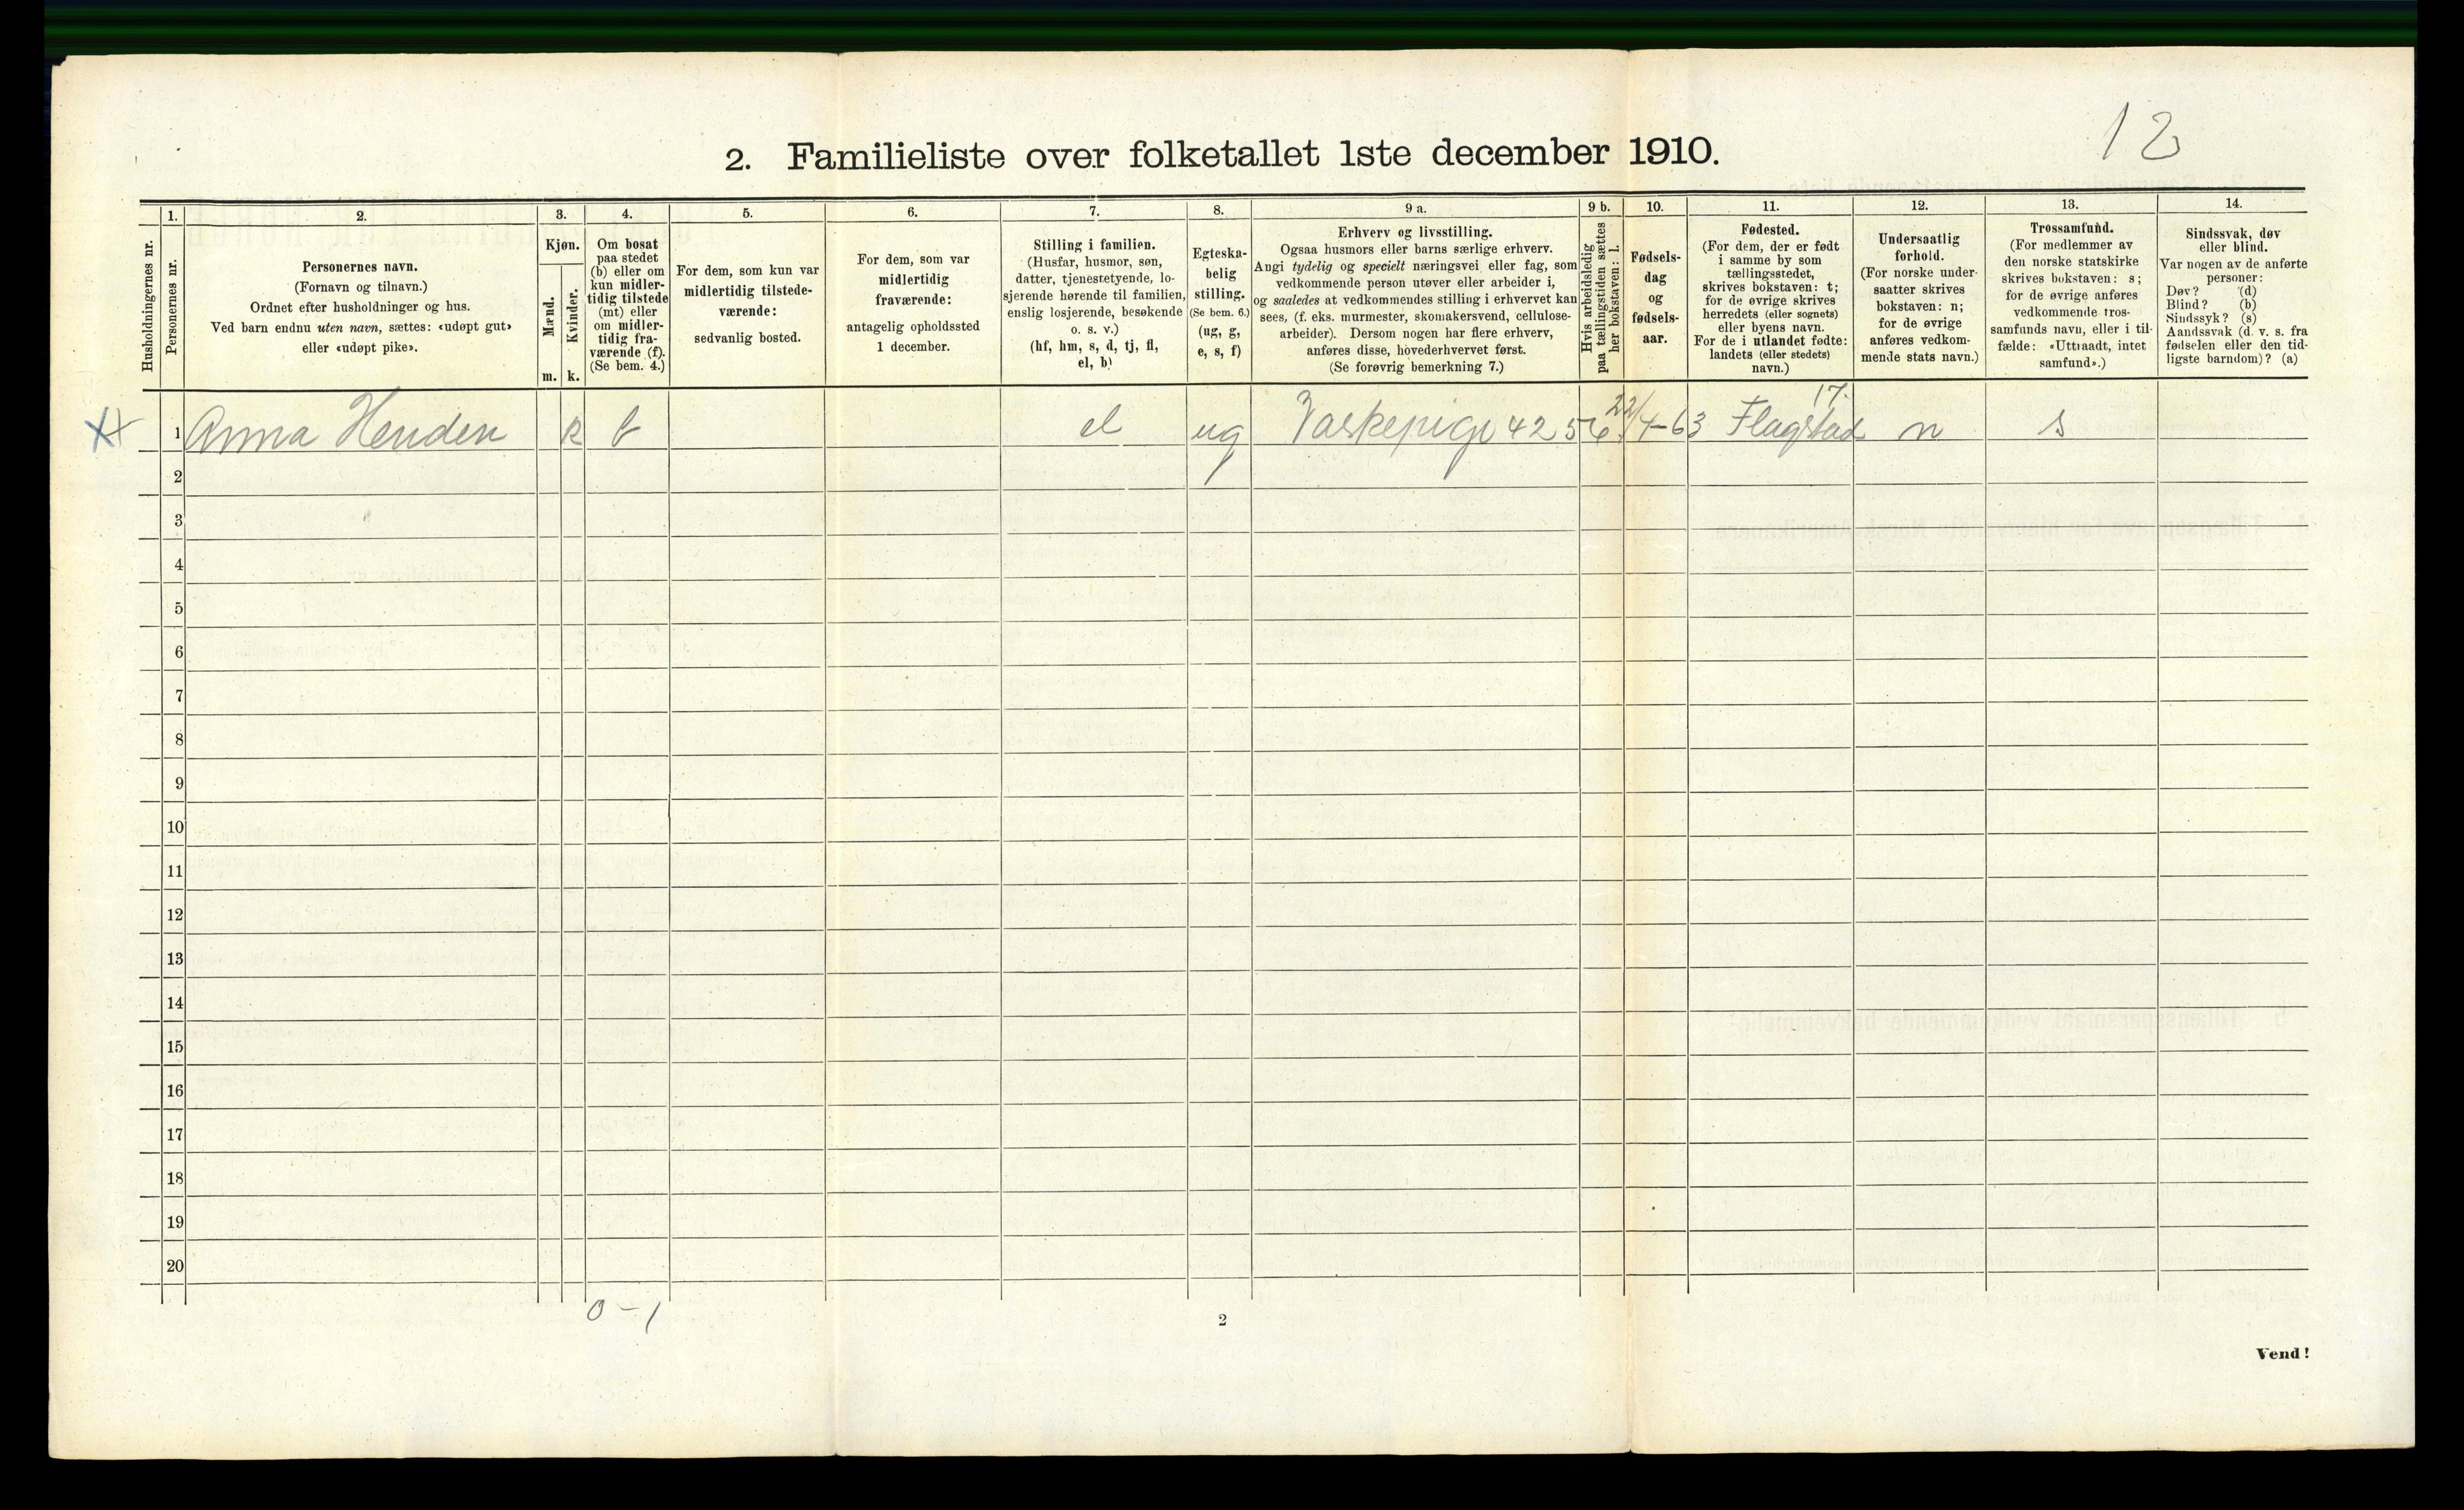 12
2. Familieliste over folketallet 1ste december 1910.
Husholdningernes nr.
1.
Personernes nr.
2.
Personernes navn.
(Fornavn og tilnavn.)
Ordnet efter husholdninger og hus.
Ved barn endnu uten navn, sættes: «udøpt gut»
eller «udøpt pike».
3.
Kjøn.
Mænd.
m.
Kvinder.
k.
4.
Om bosat
paa stedet
(b) eller om
kun midler-
tidig tilstede
(mt) eller
om midler-
tidig fra-
værende (f).
(Se bem. 4.)
5.
For dem, som kun var
midlertidig tilstede-
værende:
sedvanlig bosted.
6.
For dem, som var
midlertidig
fraværende:
antagelig opholdssted
1 december.
7.
Stilling i familien.
(Husfar, husmor, søn,
datter, tjenestetyende, lo-
sjerende hørende til familien,
enslig losjerende, besøkende
o. s. v.)
(hf, hm, s, d, tj, fl,
el, b)
8.
Egteska-
belig
stilling.
(Se bem. 6.)
(ug, g,
e, s, f)
9 a.
Erhverv og livsstilling.
Ogsaa husmors eller barns særlige erhverv.
Angi tydelig og specielt næringsvei eller fag, som
vedkommende person utøver eller arbeider i,
og saaledes at vedkommendes stilling i erhvervet kan
sees, (f. eks. murmester, skomakersvend, cellulose-
arbeider). Dersom nogen har flere erhverv,
anføres disse, hovederhvervet først.
(Se forøvrig bemerkning 7.)
9 b.
Hvis arbeidsledig
paa tællingstiden sættes
her bokstaven: l.
10.
Fødsels-
dag
og
fødsels-
aar.
11.
Fødested.
(For dem, der er født
i samme by som
tællingsstedet,
skrives bokstaven: t;
for de øvrige skrives
herredets (eller sognets)
eller byens navn.
For de i utlandet fødte:
landets (eller stedets)
navn.)
12.
Undersaatlig
forhold.
(For norske under-
saatter skrives
bokstaven: n;
for de øvrige
anføres vedkom-
mende stats navn.)
13.
Trossamfund.
(For medlemmer av
den norske statskirke
skrives bokstaven: s;
for de øvrige anføres
vedkommende tros-
samfunds navn, eller i til-
fælde: «Uttraadt, intet
samfund».)
14.
Sindssvak, døv
eller blind.
Var nogen av de anførte
personer:
Døv? (d)
Blind? (b)
Sindssyk? (s)
Aandssvak (d. v. s. fra
fødselen eller den tid-
ligste barndom)? (a)
17.
1 Anna Henden k b el ug Vaskepige 4256 22/4-63 Flagstad n s
2
3
4
5
6
7
8
9
10
11
12
13
14
15
16
17
18
19
20
0-1
2
Vend!